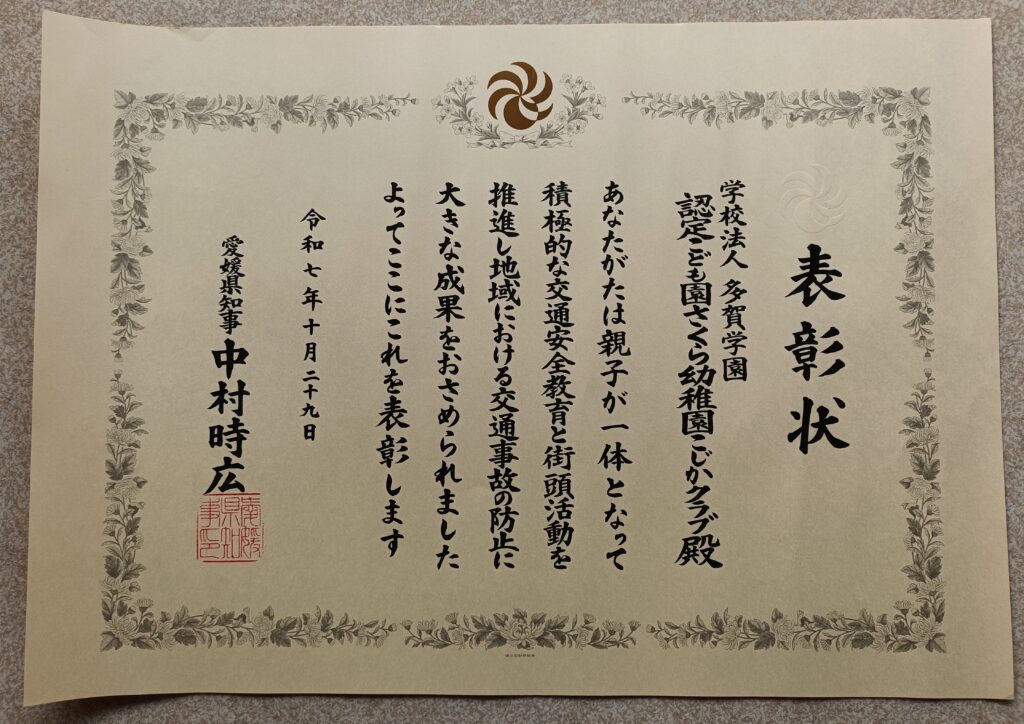 表彰状
学校法人 多賀学園
認定こども園さくら幼稚園こじかクラブ殿
あなたがたは親子が一体となって
積極的な交通安全教育と街頭活動を
推進し地域における交通事故の防止に
大きな成果をおさめられました
よってここにこれを表彰します
令和七年十月二十九日
愛媛県知事 中村時広
愛媛県知事印